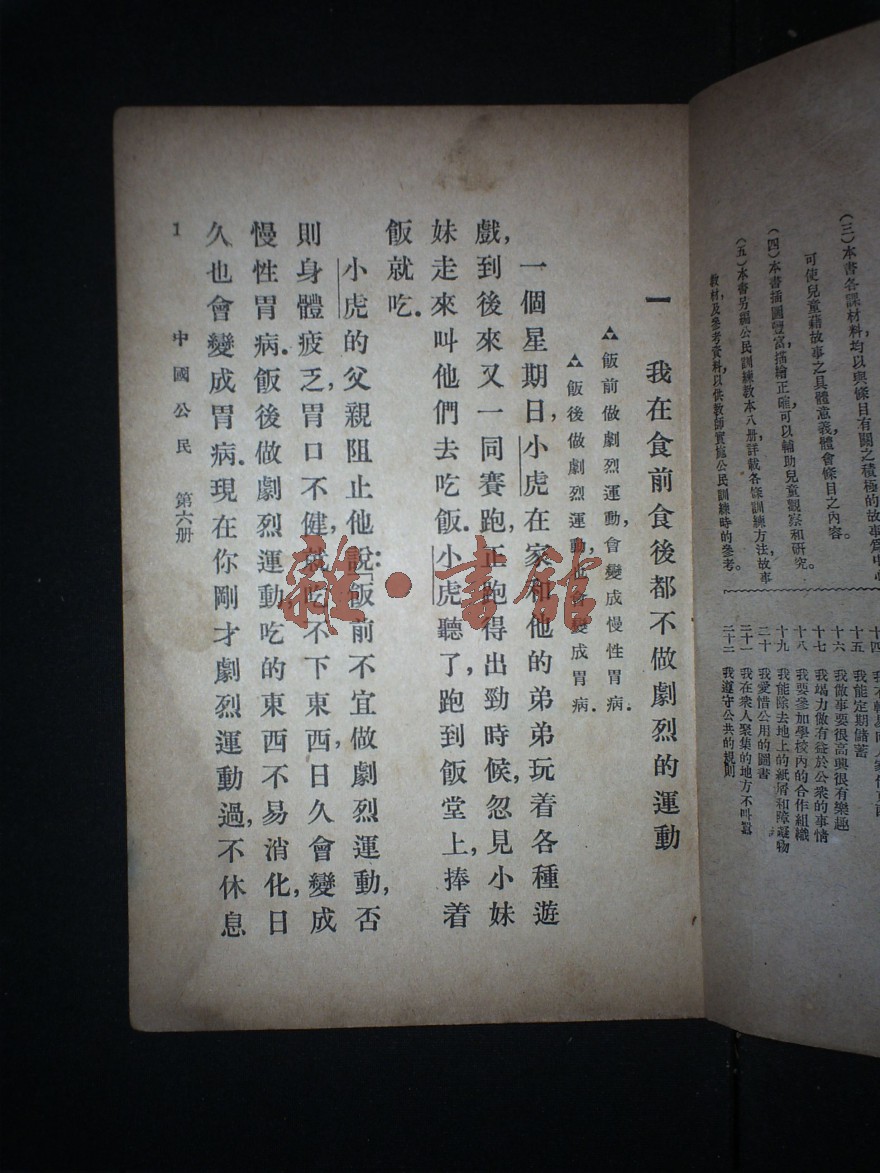 (三)本書各課材料均以與條目有關之積極的故事為中心
可使兒童藉故事之具體意義,體會條目之內容。
(四)本書插圖豐富,描繪正確,可以輔助兒童觀察和研究。
(五)本書另編公民訓練教本八册,詳載各條訓練方法,故事
教材,及參考資料,以供教師實施公民訓練時的參考。
十四
十五 我能定期儲蓄
十六 我做事要很高興很有樂趣
十七 我竭力做有益於公衆的事情
十八 我要參加學校內的合作組織
十九 我能除去地上的紙屑和障礙物
二十 我愛惜公用的圖書
二十一 我在衆人聚集的地方不叫囂
二十二 我遵守公共的規則
一 我在食前食後都不做劇烈的運動
▲飯前做劇烈運動,會變成慢性胃病.
▲飯後做劇烈運動,也會變成胃病.
一個星期日,小虎在家和他的弟弟玩着各種遊
戲,到後來又一同賽跑,正跑得出勁時候,忽見小妹
妹走來叫他們去吃飯.小虎聽了,跑到飯堂上,捧着
飯就吃.
小虎的父親阻止他說:「飯前不宜做劇烈運動,否
則身體疲乏,胃口不健,就吃不下東西,日久會變成
慢性胃病.飯後做劇烈運動,吃的東西不易消化,日
久也會變成胃病.現在你剛才劇烈運動過,不休息
1 中國公民 第六册
雜·書館